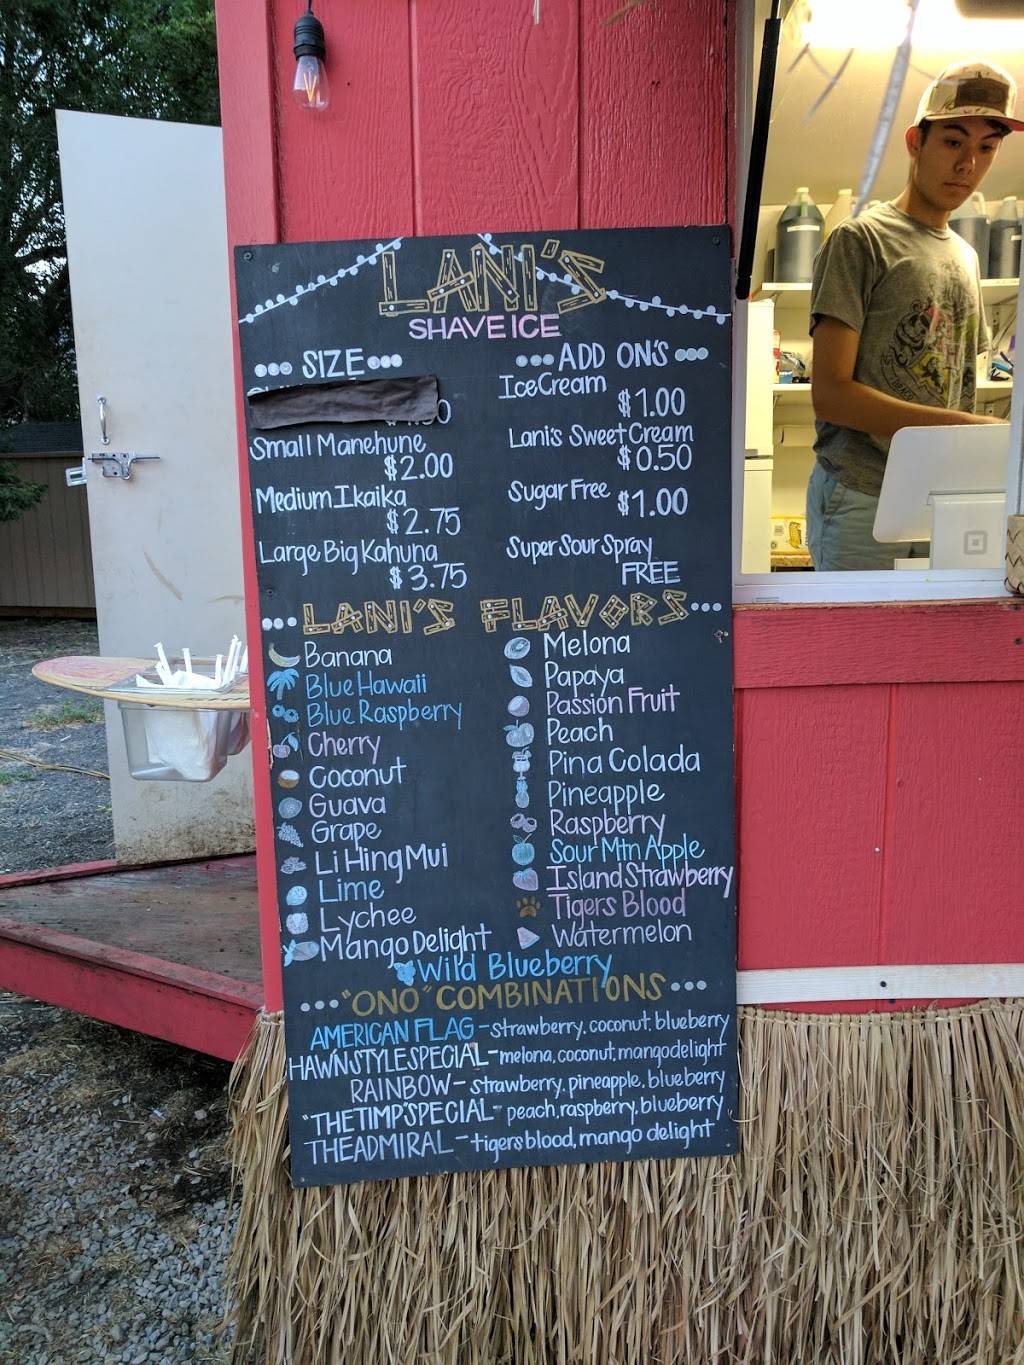 LANI'S
SHAVE ICE
SIZE
Small Manehune
$2.00
Medium Ikaika
$2.75
Large Big Kahuna
$3.75
ADD ON'S
Ice Cream
$1.00
Lani's Sweet Cream
$0.50
Sugar Free
$1.00
Super Sour Spray
FREE
LANI'S FLAVORS
Banana
Blue Hawaii
Blue Raspberry
Cherry
Coconut
Guava
Grape
Li Hing Mui
Lime
Lychee
Mango Delight
Melona
Papaya
Passion Fruit
Peach
Pina Colada
Pineapple
Raspberry
Sour Mtn Apple
Island Strawberry
Tigers Blood
Watermelon
Wild Blueberry
"ONO" COMBINATIONS
AMERICAN FLAG - strawberry, coconut, blueberry
HAWN STYLE SPECIAL - melona, coconut, mango delight
RAINBOW - strawberry, pineapple, blueberry
"THE TIMP" SPECIAL - peach, raspberry, blueberry
THE ADMIRAL - tigers blood, mango delight